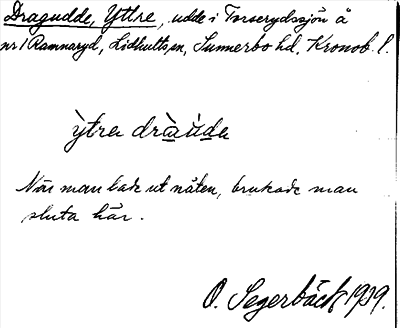 Dragudde, Yttre, udde i Torserydssjön å
nr 1 Ramnaryd, Lidhults sn, Sunnerbo hd, Kronob. l.
ỳtra dràu̇da
När man lade ut näten, brukade man
sluta här.
O. Segerbäck 1929.